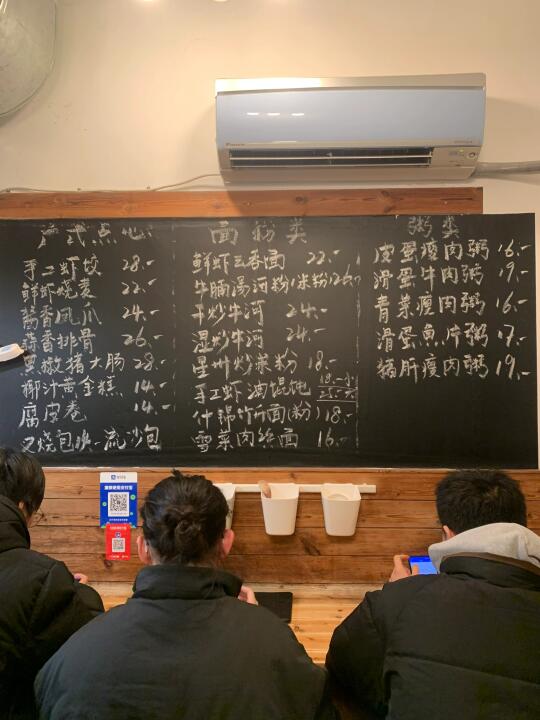 DAIKIN
广式点心
手工虾饺 28.-
鲜虾烧麦 22.-
酱香凤爪 24.-
蒜香排骨 26.-
黑椒猪大肠 28.-
椰汁黄金糕 14.-
腐皮卷 14.-
叉烧包 流沙包
面粉类
鲜虾云吞面 22.-
牛腩汤河粉(米粉)26.-
干炒牛河 24.-
湿炒牛河 24.-
星州炒米粉 18.-
手工虾油馄饨
什锦竹升面(粉)18.-
雪菜肉丝面 16.-
粥类
皮蛋瘦肉粥 16.-
滑蛋牛肉粥 19.-
青菜瘦肉粥 16.-
滑蛋魚片粥 17.-
猪肝瘦肉粥 19.-